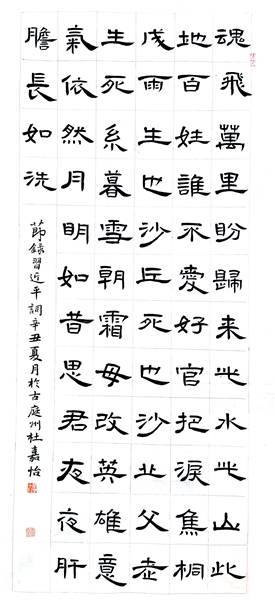 魂飛萬里盼歸來此水此山此
地百姓誰不愛好官把淚焦桐
成雨生也沙丘死也沙丘父老
生死系暮雪朝霜毋改英雄意
氣依然月明如昔思君夜夜肝
膽長如洗
節錄習近平詞辛丑夏月於古庭州杜嘉怡